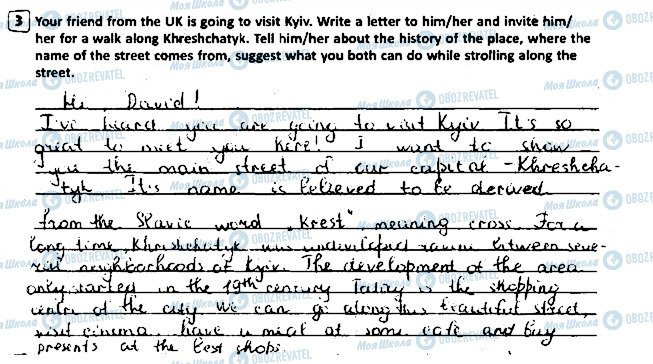 3 Your friend from the UK is going to visit Kyiv. Write a letter to him/her and invite him/
her for a walk along Khreshchatyk. Tell him/her about the history of the place, where the
name of the street comes from, suggest what you both can do while strolling along the
street.
Hi, David!
I've heard you are going to visit Kyiv. It's so
great to meet you here! I want to show
you the main street of our capital - Khreshcha-
tyk. It's name is believed to be derived
from the Slavic word „Krest" meaning cross. For a
long time, Khreshchatyk was undeveloped ravine between seve-
ral neighborhoods of Kyiv. The development of the area
only started in the 19th century. Today is the shopping
centre of the city. We can go along this beautiful street,
visit cinema, have a meal at some cafe and buy
presents at the best shops.
Моя Школа OBOZREVATEL